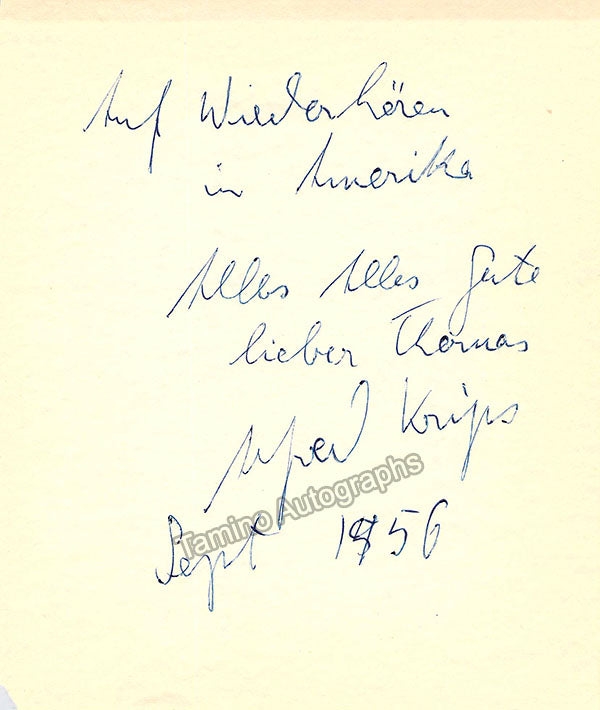 Auf Wiederhören
in Amerika
Alles Alles Gute
lieber Thomas
Alfred Krips
Tamino Autographs
Sept 1956